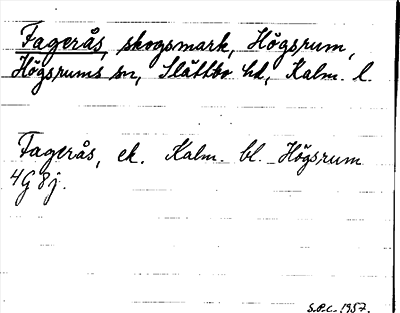 Fagerås, skogsmark, Högsrum,
Högsrums sn, Slättbo hd, Kalm. l.
Fagerås, ek. Kalm. bl. Högsrum
4G8j.
S.P.C. 1957.